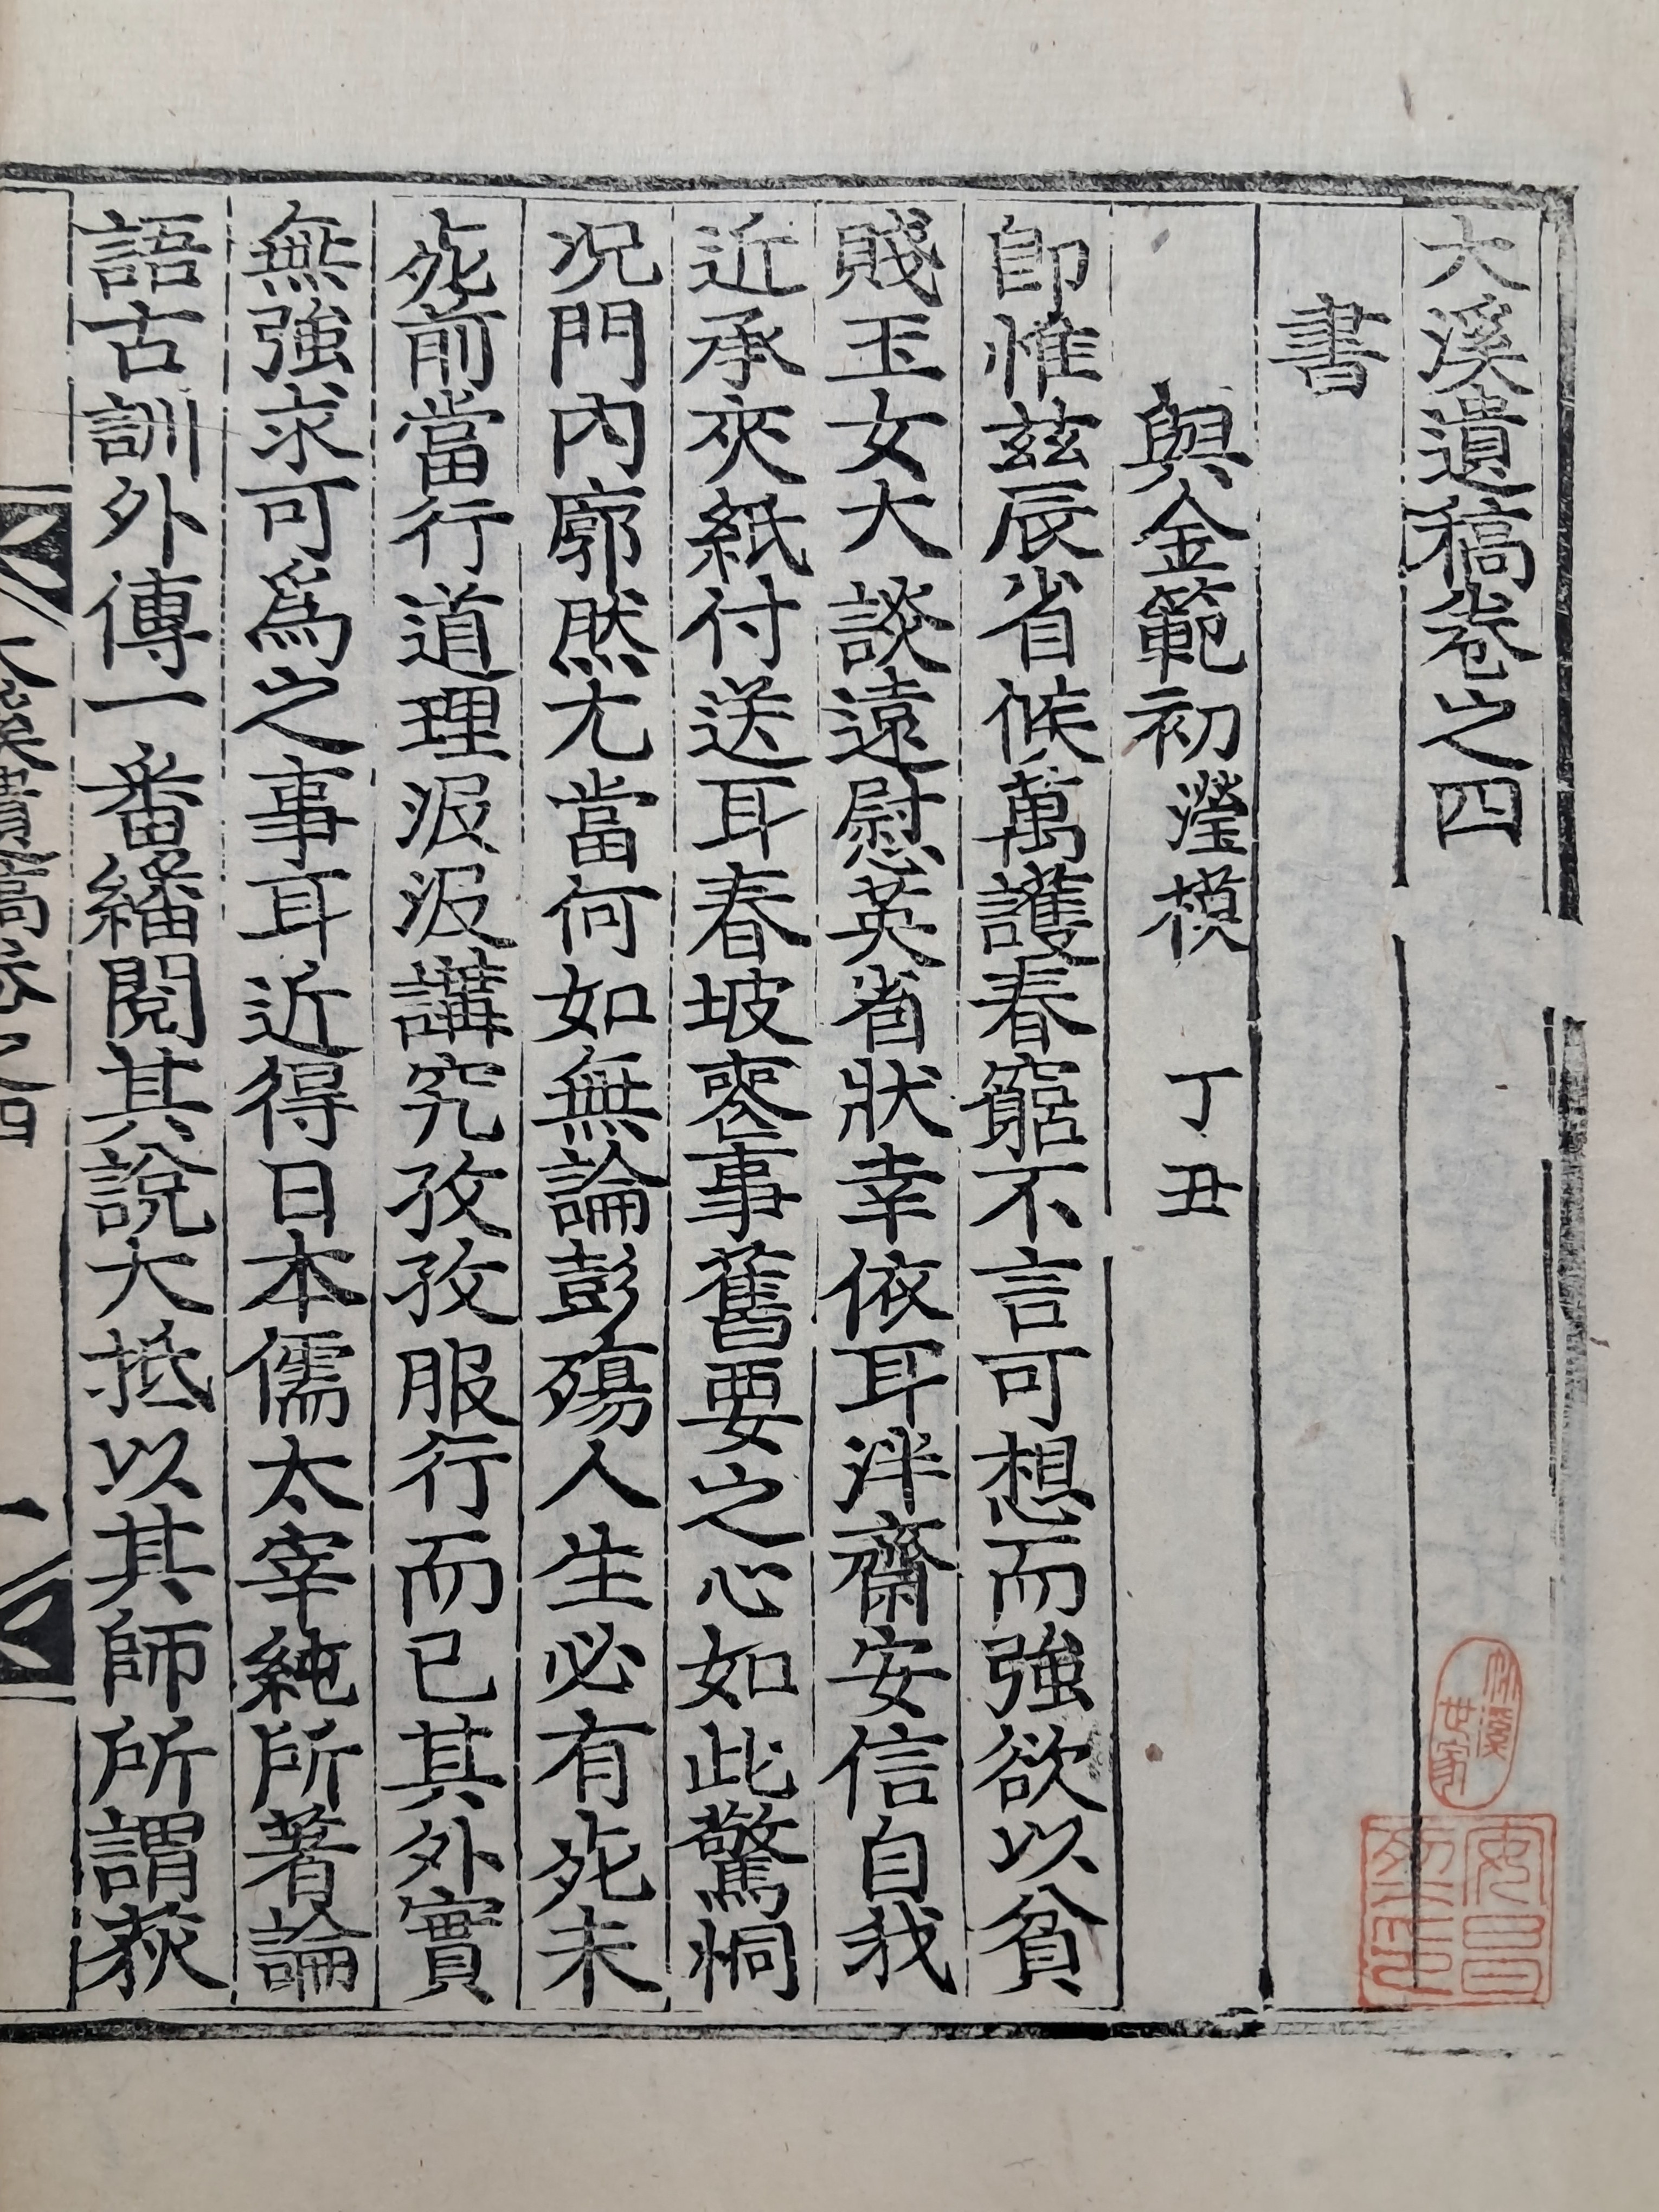 大溪遺稿卷之四
書
與金範初瀅模 丁丑
卽惟玆辰省候萬護春窮不言可想而強欲以貧
賤玉女大談遠慰英省狀幸依耳泮齋安信自我
近承夾紙付送耳春坡喪事舊要之心如此驚恫
况門內廓然尤當何如無論彭殤人生必有死未
死前當行道理汲汲講究孜孜服行而已其外實
無強求可爲之事耳近得日本儒太宰純所著論
語古訓外傳一番繙閱其說大抵以其師所謂荻
大溪遺稿卷之四
一